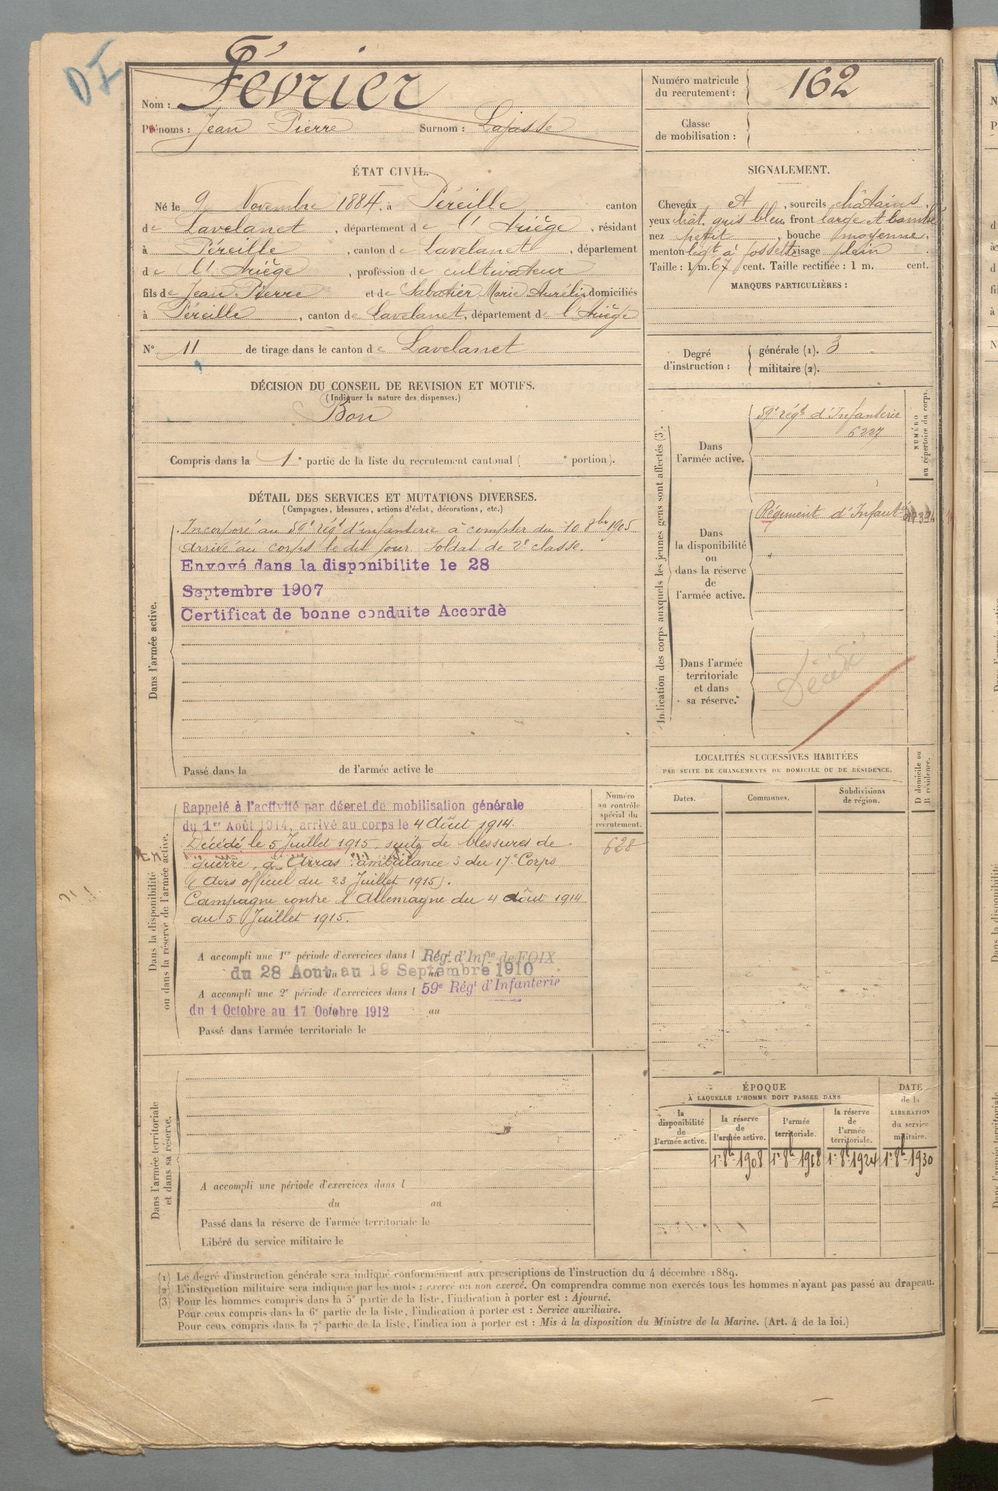 DI
Nom : Février
Prénoms : Jean Pierre Surnom : Lajasse
Numéro matricule du recrutement : 162
Classe de mobilisation :
ÉTAT CIVIL.
Né le 9 Novembre 1884, à Péreille canton
de Lavelanet, département de l'Ariège, résidant
à Péreille, canton de Lavelanet, département
de l'Ariège, profession de cultivateur
fils de Jean Pierre et de Sabatier Marie Aurélie domiciliés
à Péreille, canton de Lavelanet, département de l'Ariège
N° 11 de tirage dans le canton de Lavelanet
SIGNALEMENT.
Cheveux et, sourcils châtains,
yeux chat. gris bleu front large et bombé
nez petit, bouche moyenne,
menton à fossette visage plein
Taille : 1 m. 67 cent. Taille rectifiée : 1 m. cent.
MARQUES PARTICULIÈRES :
Degré d'instruction : générale (1). 3
militaire (2).
DÉCISION DU CONSEIL DE REVISION ET MOTIFS.
(Indiquer la nature des dispenses.)
Bon
Compris dans la 1e partie de la liste du recrutement cantonal ( e portion).
DÉTAIL DES SERVICES ET MUTATIONS DIVERSES.
(Campagnes, blessures, actions d'éclat, décorations, etc.)
Dans l'armée active.
Incorporé au 59e régt d'infanterie à compter du 10 8bre 1905
arrivé au corps le dit jour, soldat de 2e classe.
Envoyé dans la disponibilite le 28
Septembre 1907
Certificat de bonne conduite Accordè
Passé dans la de l'armée active le
Dans la disponibilité ou dans la réserve de l'armée active.
Rappelé à l'activité par décret de mobilisation générale
du 1er Août 1914, arrivé au corps le 4 Août 1914.
Décédé le 5 Juillet 1915, suite de blessures de
guerre, à Arras ambulance 3 du 17e Corps
(Avis officiel du 23 Juillet 1915).
Campagne contre l'Allemagne du 4 août 1914
au 5 Juillet 1915.
A accompli une 1re période d'exercices dans l Rég. d'Infie de FOIX
du 28 Aout au 19 Septembre 1910
A accompli une 2e période d'exercices dans l 59e Régt d'Infanterie
du 1 Octobre au 17 Octobre 1912 au
Passé dans l'armée territoriale le
Numéro au contrôle spécial du recrutement.
628
Dans l'armée territoriale et dans sa réserve.
A accompli une période d'exercices dans l
du au
Passé dans la réserve de l'armée territoriale le
Libéré du service militaire le
Indication des corps auxquels les jeunes gens sont affectés (3).
NUMÉRO au répertoire du corps.
Dans l'armée active.
59e régt d'Infanterie
6227
Dans la disponibilité ou dans la réserve de l'armée active.
Régiment d'Infant
Dans l'armée territoriale et dans sa réserve.
Décédé
LOCALITÉS SUCCESSIVES HABITÉES
PAR SUITE DE CHANGEMENTS DE DOMICILE OU DE RÉSIDENCE.
D domicile ou R résidence.
Dates. Communes. Subdivisions de région.
ÉPOQUE
À LAQUELLE L'HOMME DOIT PASSER DANS
DATE de la LIBÉRATION du service militaire.
la disponibilité de l'armée active.
la réserve de l'armée active.
l'armée territoriale.
la réserve de l'armée territoriale.
1er 8bre 1908 1er 8bre 1918 1er 8bre 1924 1er 8bre 1930
(1) Le degré d'instruction générale sera indiqué conformément aux prescriptions de l'instruction du 4 décembre 1889.
(2) L'instruction militaire sera indiquée par les mots : exercé ou non exercé. On comprendra comme non exercés tous les hommes n'ayant pas passé au drapeau.
(3) Pour les hommes compris dans la 5e partie de la liste, l'indication à porter est : Ajourné.
Pour ceux compris dans la 6e partie de la liste, l'indication à porter est : Service auxiliaire.
Pour ceux compris dans la 7e partie de la liste, l'indication à porter est : Mis à la disposition du Ministre de la Marine. (Art. 4 de la loi.)